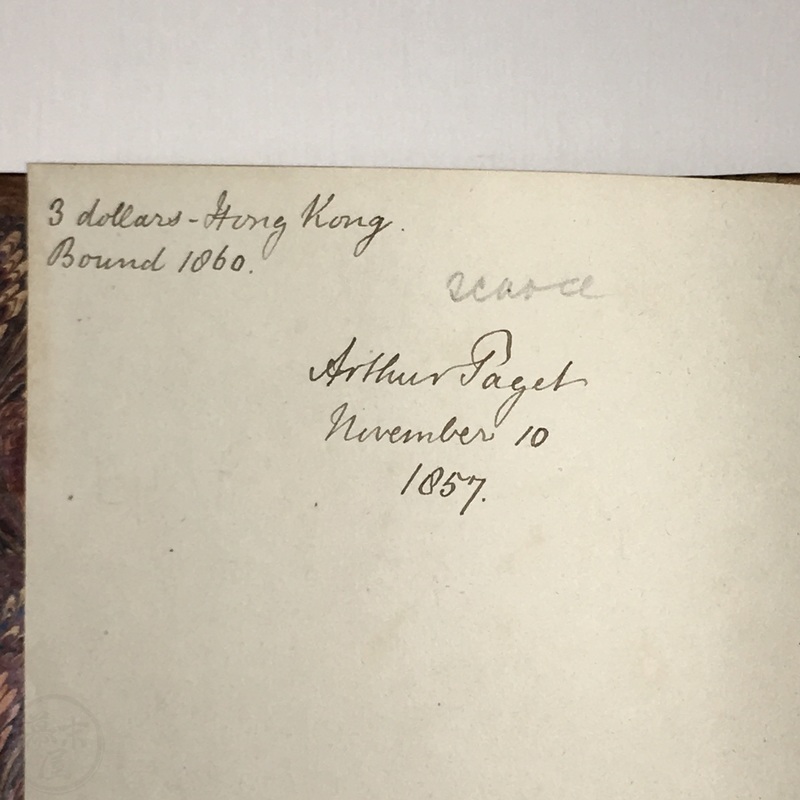 3 dollars - Hong Kong.
Bound 1860.
scarce
Arthur Paget
November 10
1857.